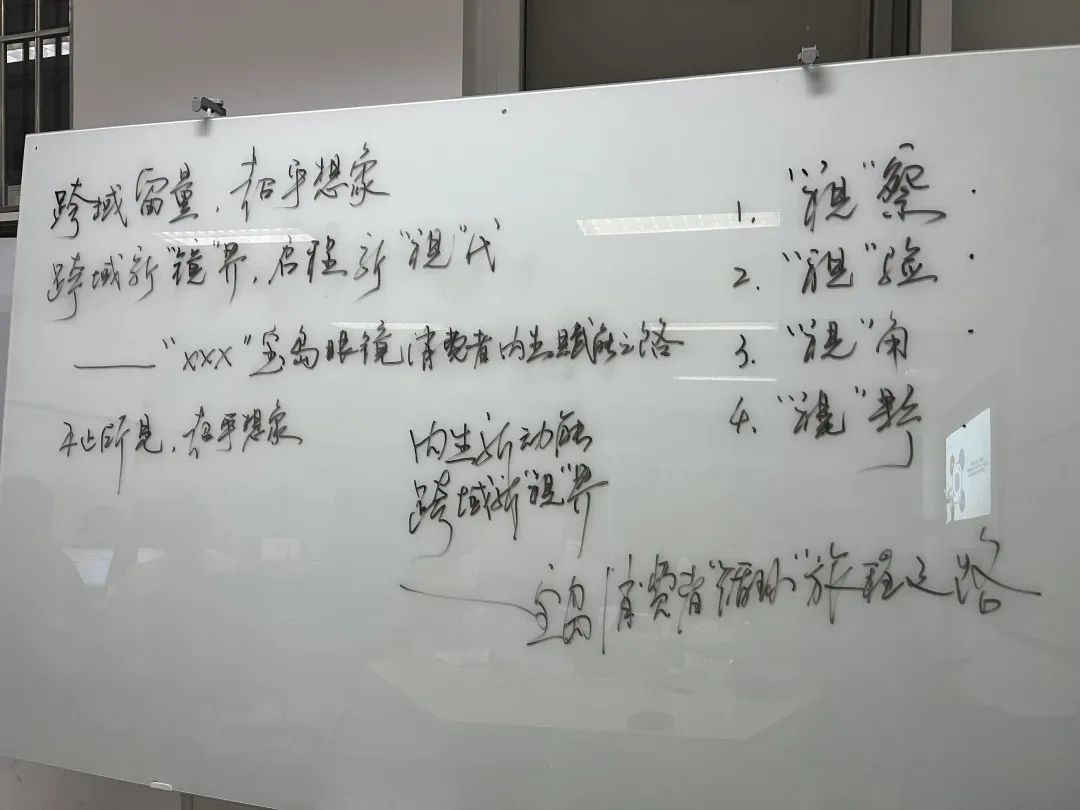 跨域留量，超乎想象
跨域新“镜”界，启程新“视”代
——“xxx”宝岛眼镜消费者内生赋能之路
不止所见，超乎想象
内生新动能
跨域新“视”界
——宝岛消费者“循环”旅程之路
1. “视”察
2. “视”验
3. “视”角
4. “视”野